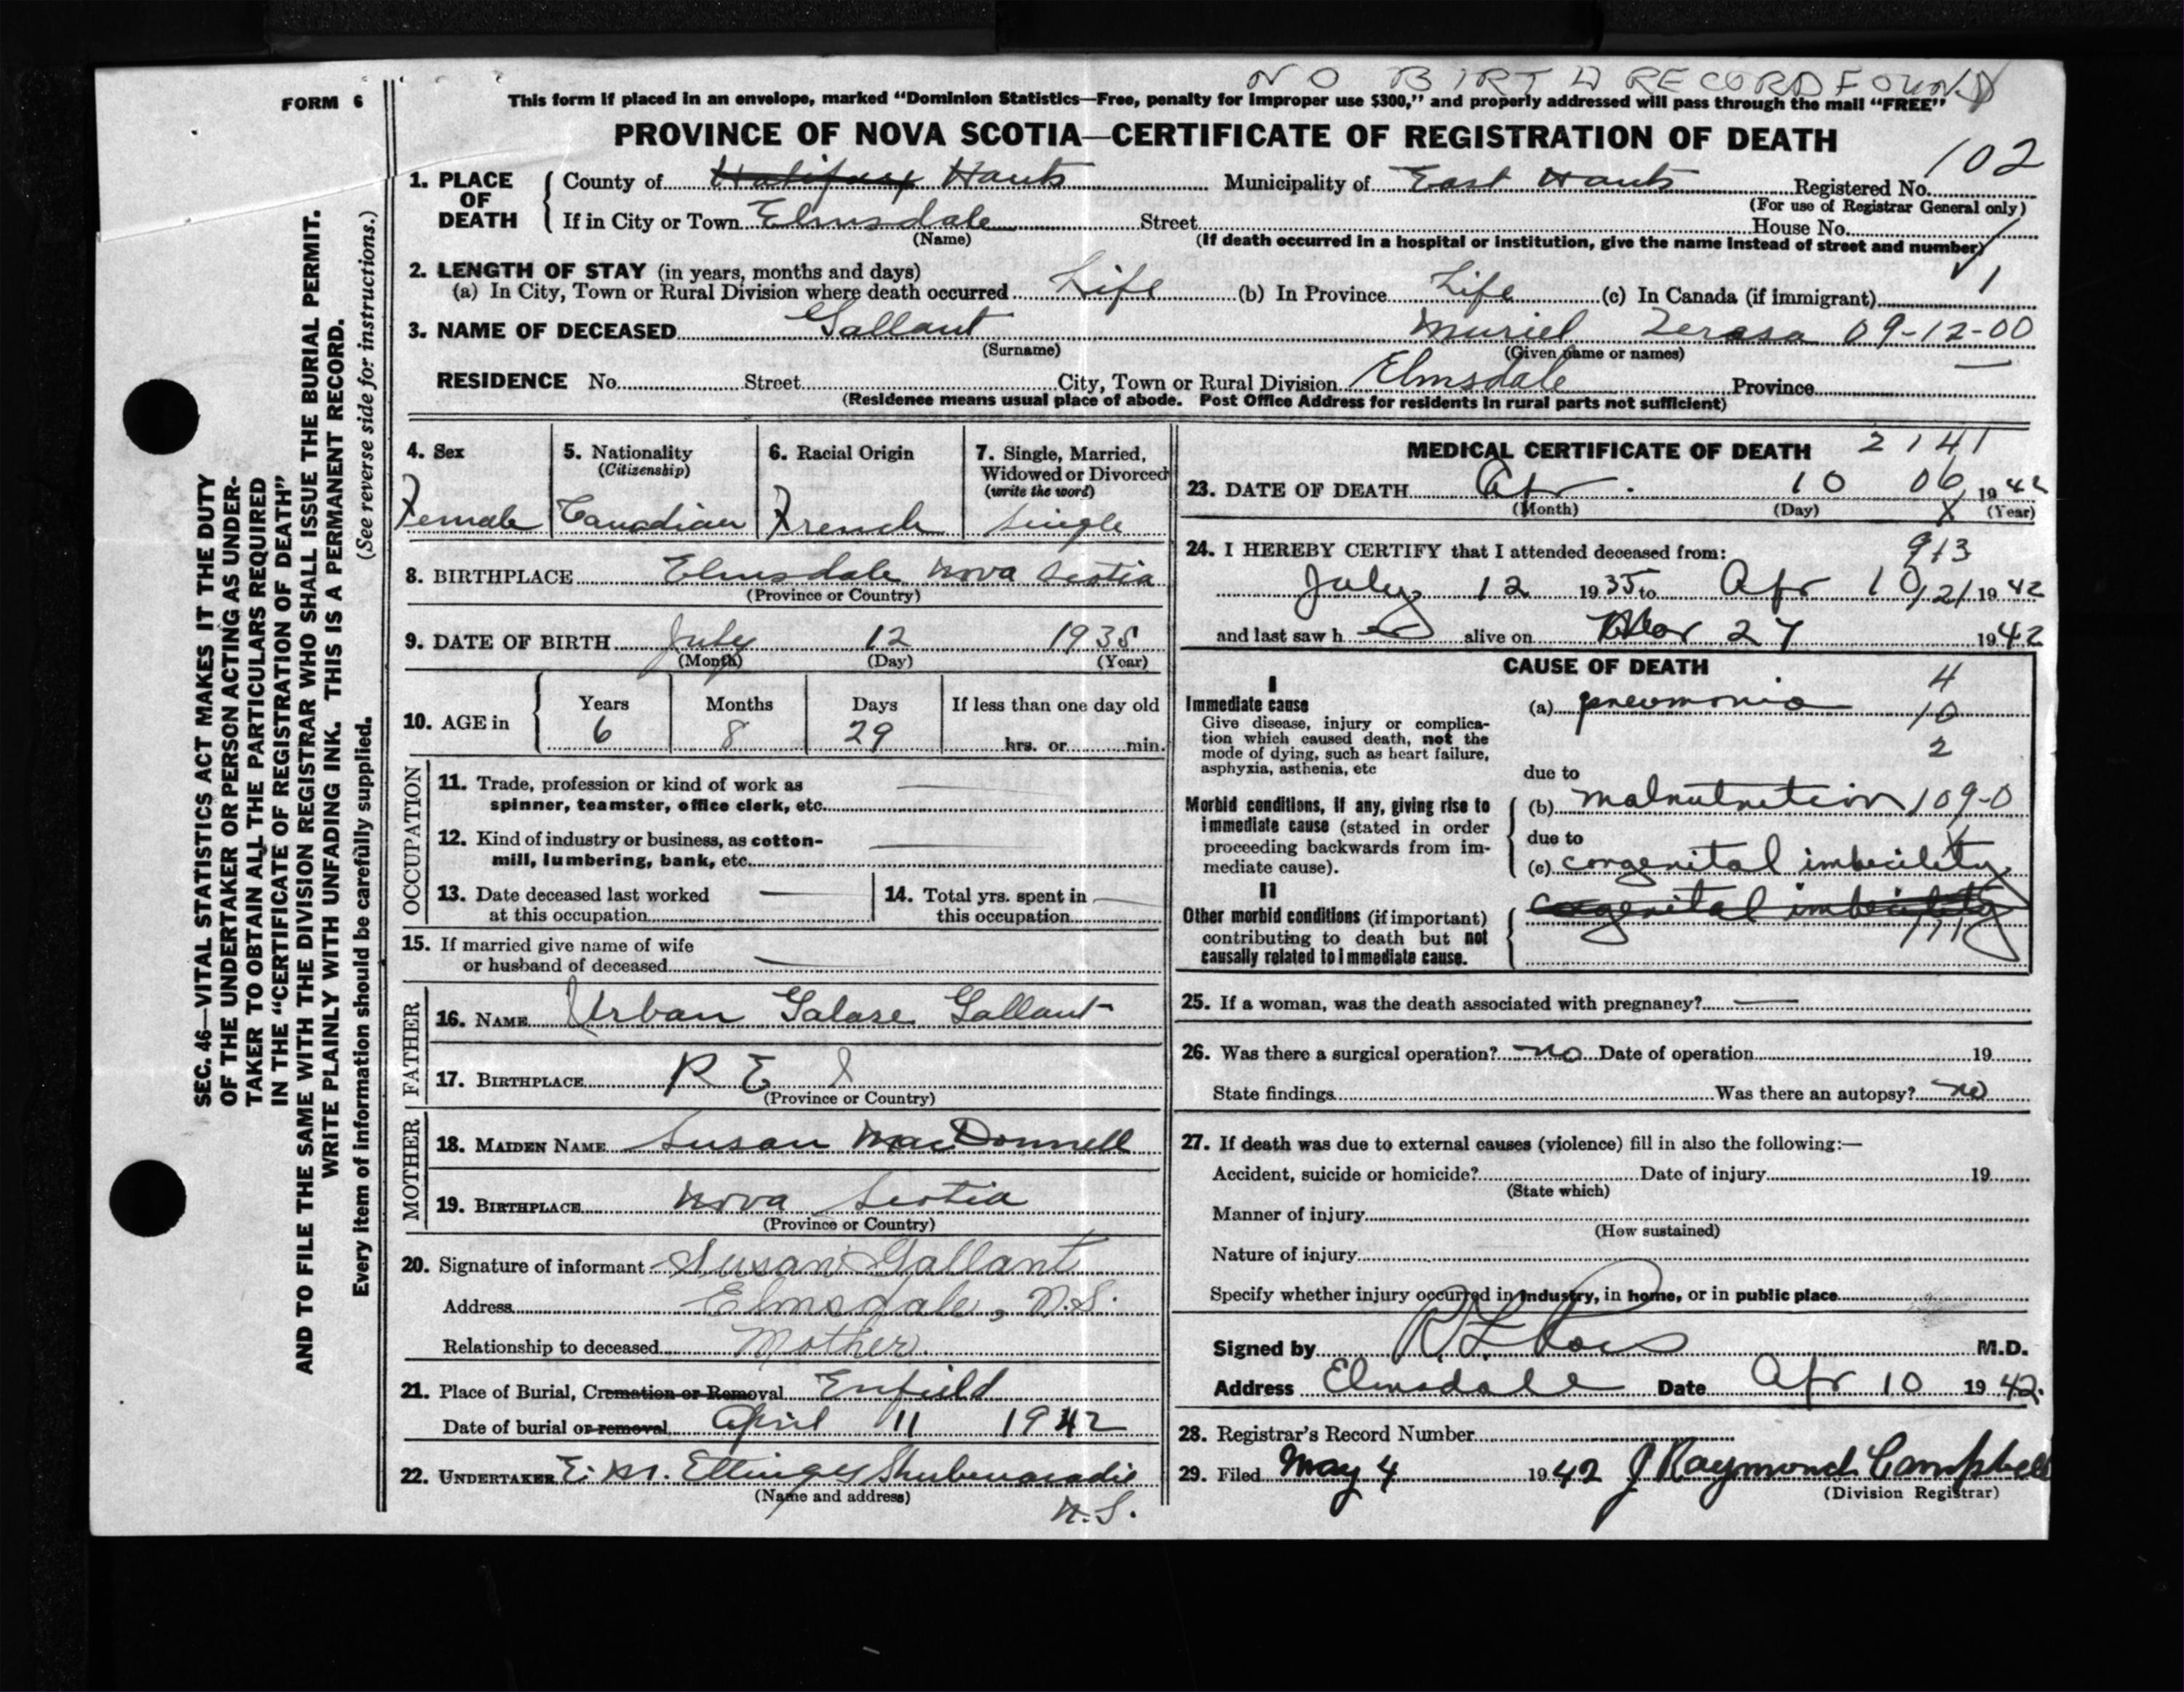 NO BIRTH RECORD FOUND
FORM 6
This form if placed in an envelope, marked “Dominion Statistics—Free, penalty for improper use $300,” and properly addressed will pass through the mail “FREE”
PROVINCE OF NOVA SCOTIA—CERTIFICATE OF REGISTRATION OF DEATH
102
1. PLACE OF DEATH County of Halifax Hants Municipality of East Hants Registered No.
(For use of Registrar General only)
If in City or Town Elmsdale Street House No.
(Name) (If death occurred in a hospital or institution, give the name instead of street and number)
2. LENGTH OF STAY (in years, months and days)
(a) In City, Town or Rural Division where death occurred Life (b) In Province Life (c) In Canada (if immigrant) 1
3. NAME OF DECEASED Gallant Muriel Terasa 09-12-00
(Surname) (Given name or names)
RESIDENCE No. Street City, Town or Rural Division Elmsdale Province
(Residence means usual place of abode. Post Office Address for residents in rural parts not sufficient)
4. Sex
Female
5. Nationality
(Citizenship)
Canadian
6. Racial Origin
French
7. Single, Married,
Widowed or Divorced
(write the word)
Single
8. BIRTHPLACE Elmsdale Nova Scotia
(Province or Country)
9. DATE OF BIRTH July 12 1935
(Month) (Day) (Year)
10. AGE in Years Months Days If less than one day old
6 8 29 hrs. or min.
OCCUPATION
11. Trade, profession or kind of work as
spinner, teamster, office clerk, etc.
12. Kind of industry or business, as cotton-
mill, lumbering, bank, etc.
13. Date deceased last worked
at this occupation
14. Total yrs. spent in
this occupation
15. If married give name of wife
or husband of deceased
FATHER
16. NAME Urban Galase Gallant
17. BIRTHPLACE P E I
(Province or Country)
MOTHER
18. MAIDEN NAME Susan MacDonnell
19. BIRTHPLACE Nova Scotia
(Province or Country)
20. Signature of informant Susan Gallant
Address Elmsdale, N.S.
Relationship to deceased Mother.
21. Place of Burial, Cremation or Removal Enfield
Date of burial or removal April 11 1942
22. UNDERTAKER E. M. Ettinger Shubenacadie
(Name and address)
N.S.
MEDICAL CERTIFICATE OF DEATH 2141
23. DATE OF DEATH Apr. 10 06 1942
(Month) (Day) X (Year)
24. I HEREBY CERTIFY that I attended deceased from: 913
July 12 1935 to Apr 10 121 1942
and last saw her alive on Mar 27 1942
CAUSE OF DEATH
I
Immediate cause
Give disease, injury or complica-
tion which caused death, not the
mode of dying, such as heart failure,
asphyxia, asthenia, etc
4
(a) pneumonia 10
2
due to
Morbid conditions, if any, giving rise to
immediate cause (stated in order
proceeding backwards from im-
mediate cause).
(b) malnutrition 109-0
due to
(c) congenital imbecility
II
Other morbid conditions (if important)
contributing to death but not
causally related to immediate cause.
congenital imbecility
25. If a woman, was the death associated with pregnancy?
26. Was there a surgical operation? no Date of operation 19
State findings Was there an autopsy? no
27. If death was due to external causes (violence) fill in also the following:—
Accident, suicide or homicide? Date of injury 19
(State which)
Manner of injury
(How sustained)
Nature of injury
Specify whether injury occurred in industry, in home, or in public place
Signed by M.D.
Address Elmsdale Date Apr 10 1942.
28. Registrar's Record Number
29. Filed May 4 1942 J Raymond Campbell
(Division Registrar)
SEC. 46—VITAL STATISTICS ACT MAKES IT THE DUTY
OF THE UNDERTAKER OR PERSON ACTING AS UNDER-
TAKER TO OBTAIN ALL THE PARTICULARS REQUIRED
IN THE “CERTIFICATE OF REGISTRATION OF DEATH”
AND TO FILE THE SAME WITH THE DIVISION REGISTRAR WHO SHALL ISSUE THE BURIAL PERMIT.
WRITE PLAINLY WITH UNFADING INK. THIS IS A PERMANENT RECORD.
Every item of information should be carefully supplied. (See reverse side for instructions.)